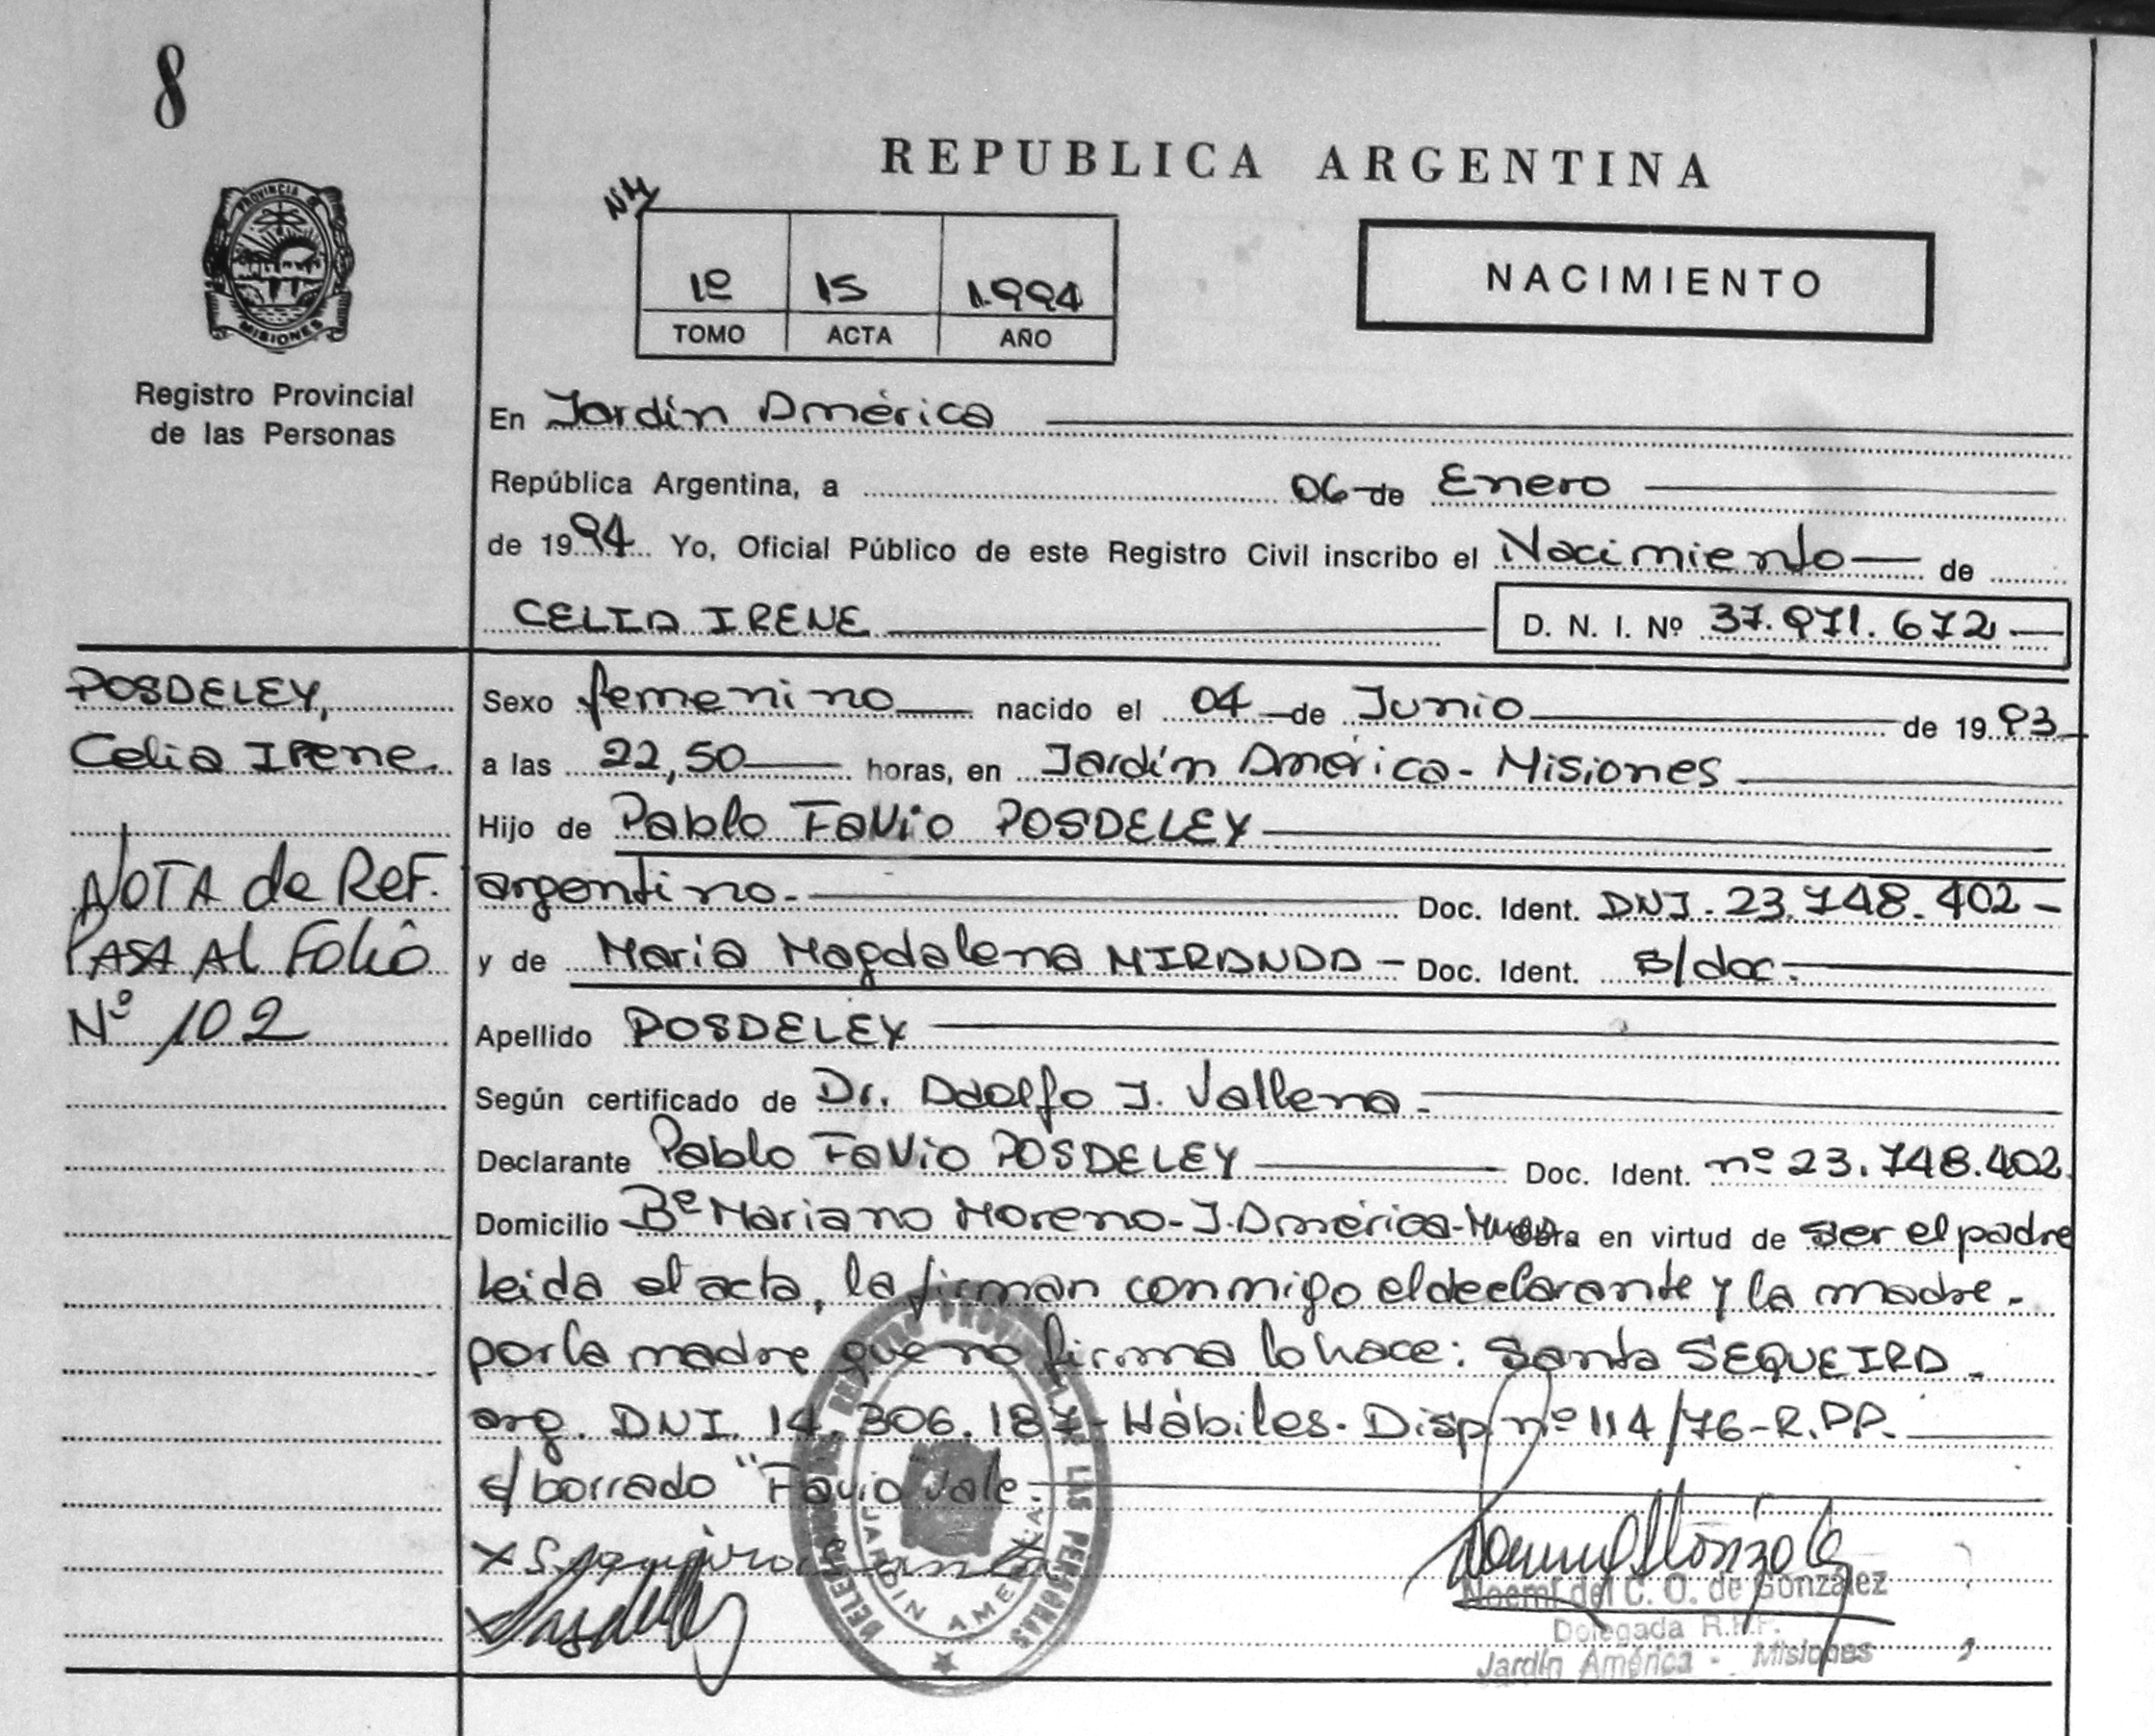 8
REPUBLICA ARGENTINA
PROVINCIA DE
MISIONES
Registro Provincial
de las Personas
NM
1º 15 1.994
TOMO ACTA AÑO
NACIMIENTO
En Jardín América
República Argentina, a 06 de Enero
de 1994 Yo, Oficial Público de este Registro Civil inscribo el Nacimiento de
CELIA IRENE D. N. I. Nº 37.971.672
POSDELEY,
Celia Irene.
NOTA de Ref.
PASA Al Folio
Nº 102
Sexo femenino nacido el 04 de Junio de 1993
a las 22,50 horas, en Jardín América - Misiones
Hijo de Pablo Favio POSDELEY
argentino. Doc. Ident. DNI. 23.748.402
y de Maria Magdalena MIRANDA Doc. Ident. s/doc.
Apellido POSDELEY
Según certificado de Dr. Adolfo J. Vallena.
Declarante Pablo Favio POSDELEY Doc. Ident. nº 23.748.402
Domicilio Bº Mariano Moreno - J. América - Obra en virtud de ser el padre
leida el acta, la firman conmigo el declarante y la madre.
por la madre que no firma lo hace: Santa SEQUEIRA.
arg. DNI. 14.306.187 - Hábiles. Disp. nº 114/76-R.PP.
s/ borrado "Favio" Vale
x Sequeira Santa
DELEGACION DEL REGISTRO PROVINCIAL DE LAS PERSONAS
JARDIN AMERICA
Noemí del C. O. de González
Delegada R.P.P.
Jardín América - Misiones